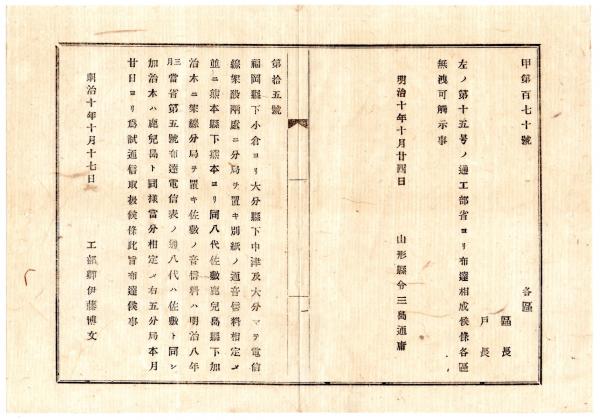 甲第百七十號
各區
區長
戸長
左ノ第十五号ノ通工部省ヨリ布達相成候條各區
無洩可觸示事
明治十年十月廿四日
山形縣令三島通庸
第拾五號
福岡縣下小倉ヨリ大分縣下中津及大分マテ電信
線架設兩處ニ分局ヲ置キ別紙ノ通音信料相定メ
並ニ熊本縣下熊本ヨリ同八代佐敷鹿兒島縣下加
治木ニ架線分局ヲ置キ佐敷ノ音信料ハ明治八年
三月當省第五號布達電信表ノ通八代ハ佐敷ト同シ
加治木ハ鹿兒島ト同様當分相定メ右五分局本月
廿日ヨリ爲試通信取扱候條此旨布達候事
明治十年十月十七日
工部卿伊藤博文